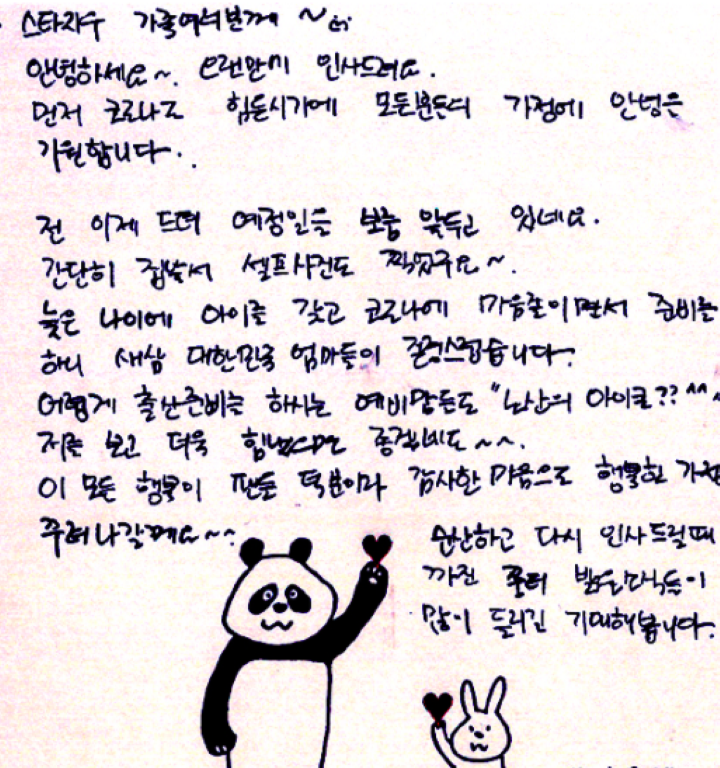 스타자수 가족여러분께 ~
안녕하세요~. 오랜만에 인사드려요.
먼저 코로나로 힘든시기에 모든분들의 가정에 안녕을
기원합니다.
전 이제 드뎌 예정일을 보름 앞두고 있네요.
간단히 집에서 셀프사진도 찍었구요~.
늦은 나이에 아이를 갖고 코로나에 마음졸이면서 준비를
하니 새삼 대한민국 엄마들이 존경스럽습니다.
어렵게 출산준비를 하시는 예비맘들도 "노산의 아이콘??^^~
저를 보고 더욱 힘냈으면 좋겠네요~~.
이 모든 행복이 팬들 덕분이라 감사한 마음으로 행복한 가정
꾸려나갈께요~~
순산하고 다시 인사드릴때
까진 좋은 소식들이
많이 들리길 기대해봅니다.